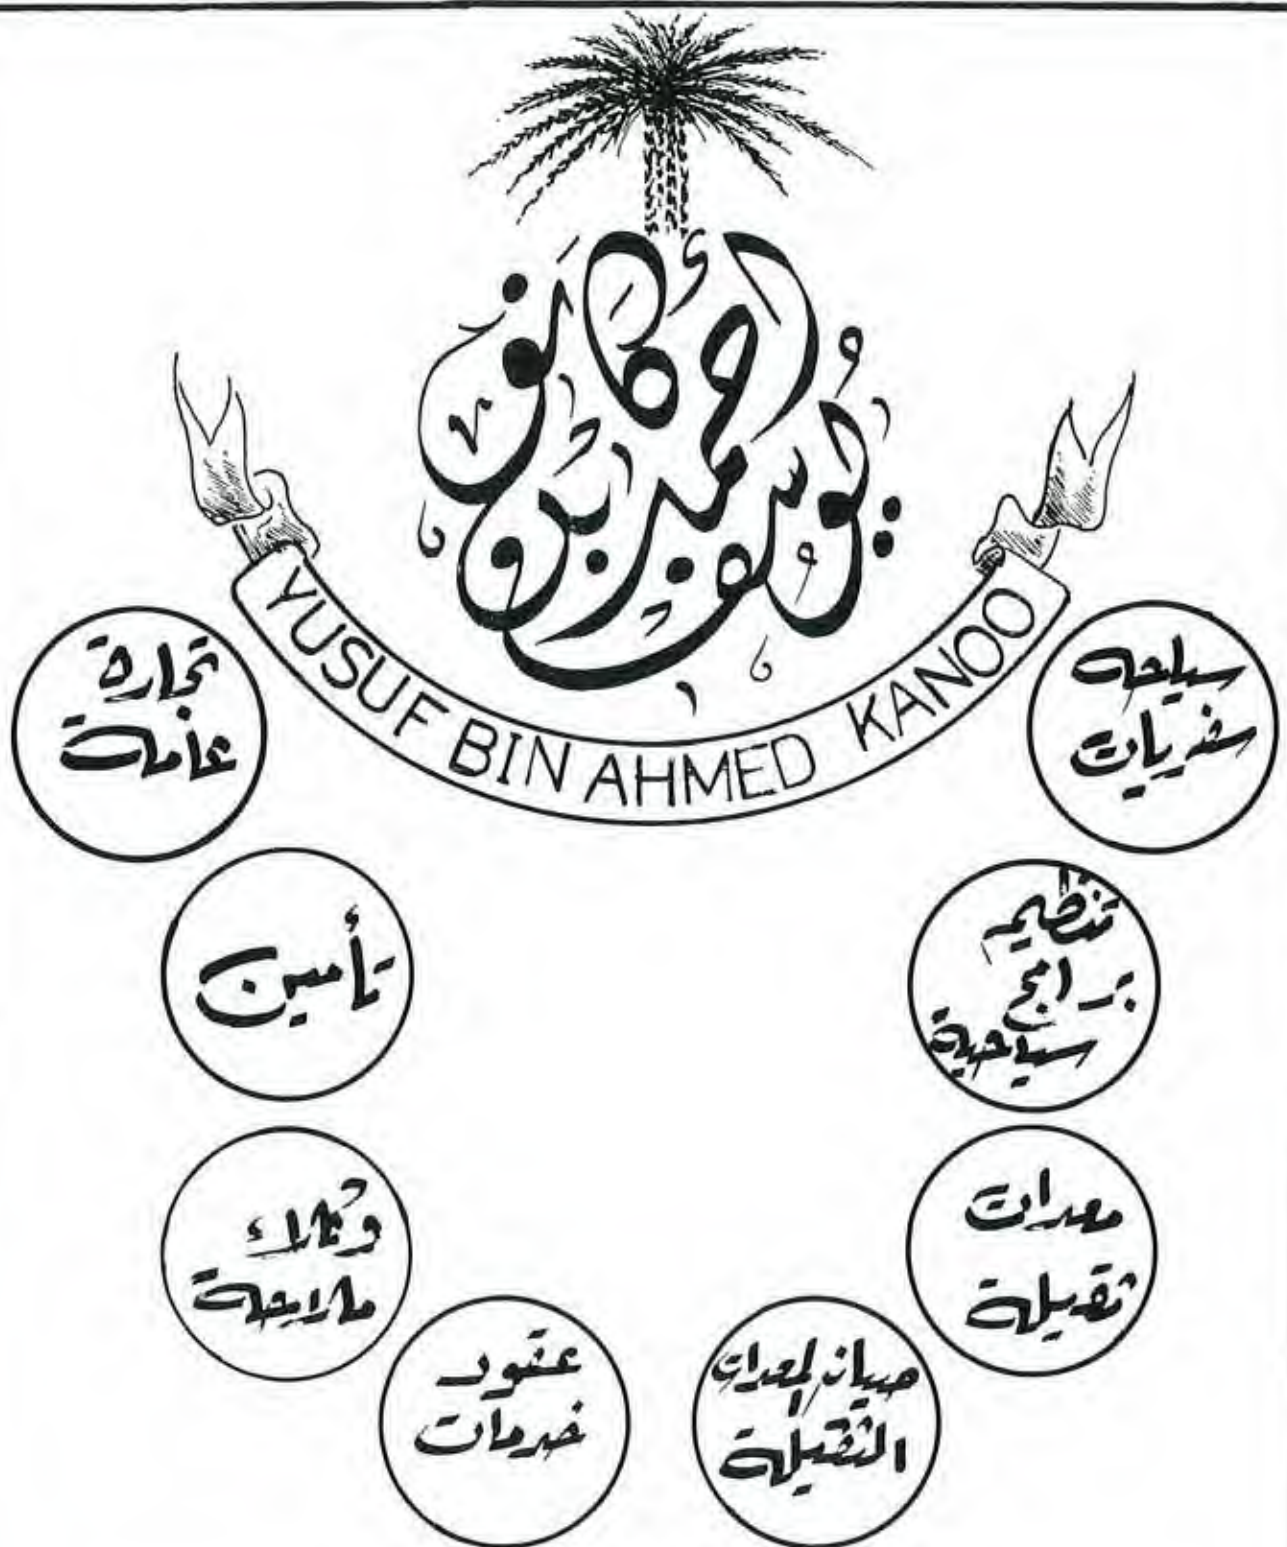 يوسف بن أحمد كانو
YUSUF BIN AHMED KANOO
سياحه
سفريات
تنظيم
برامج
سياحية
معدات
ثقيلة
صيانة المعدات
الثقيلة
عقود
خدمات
وكلاء
ملاحة
تأمين
تجارة
عامة